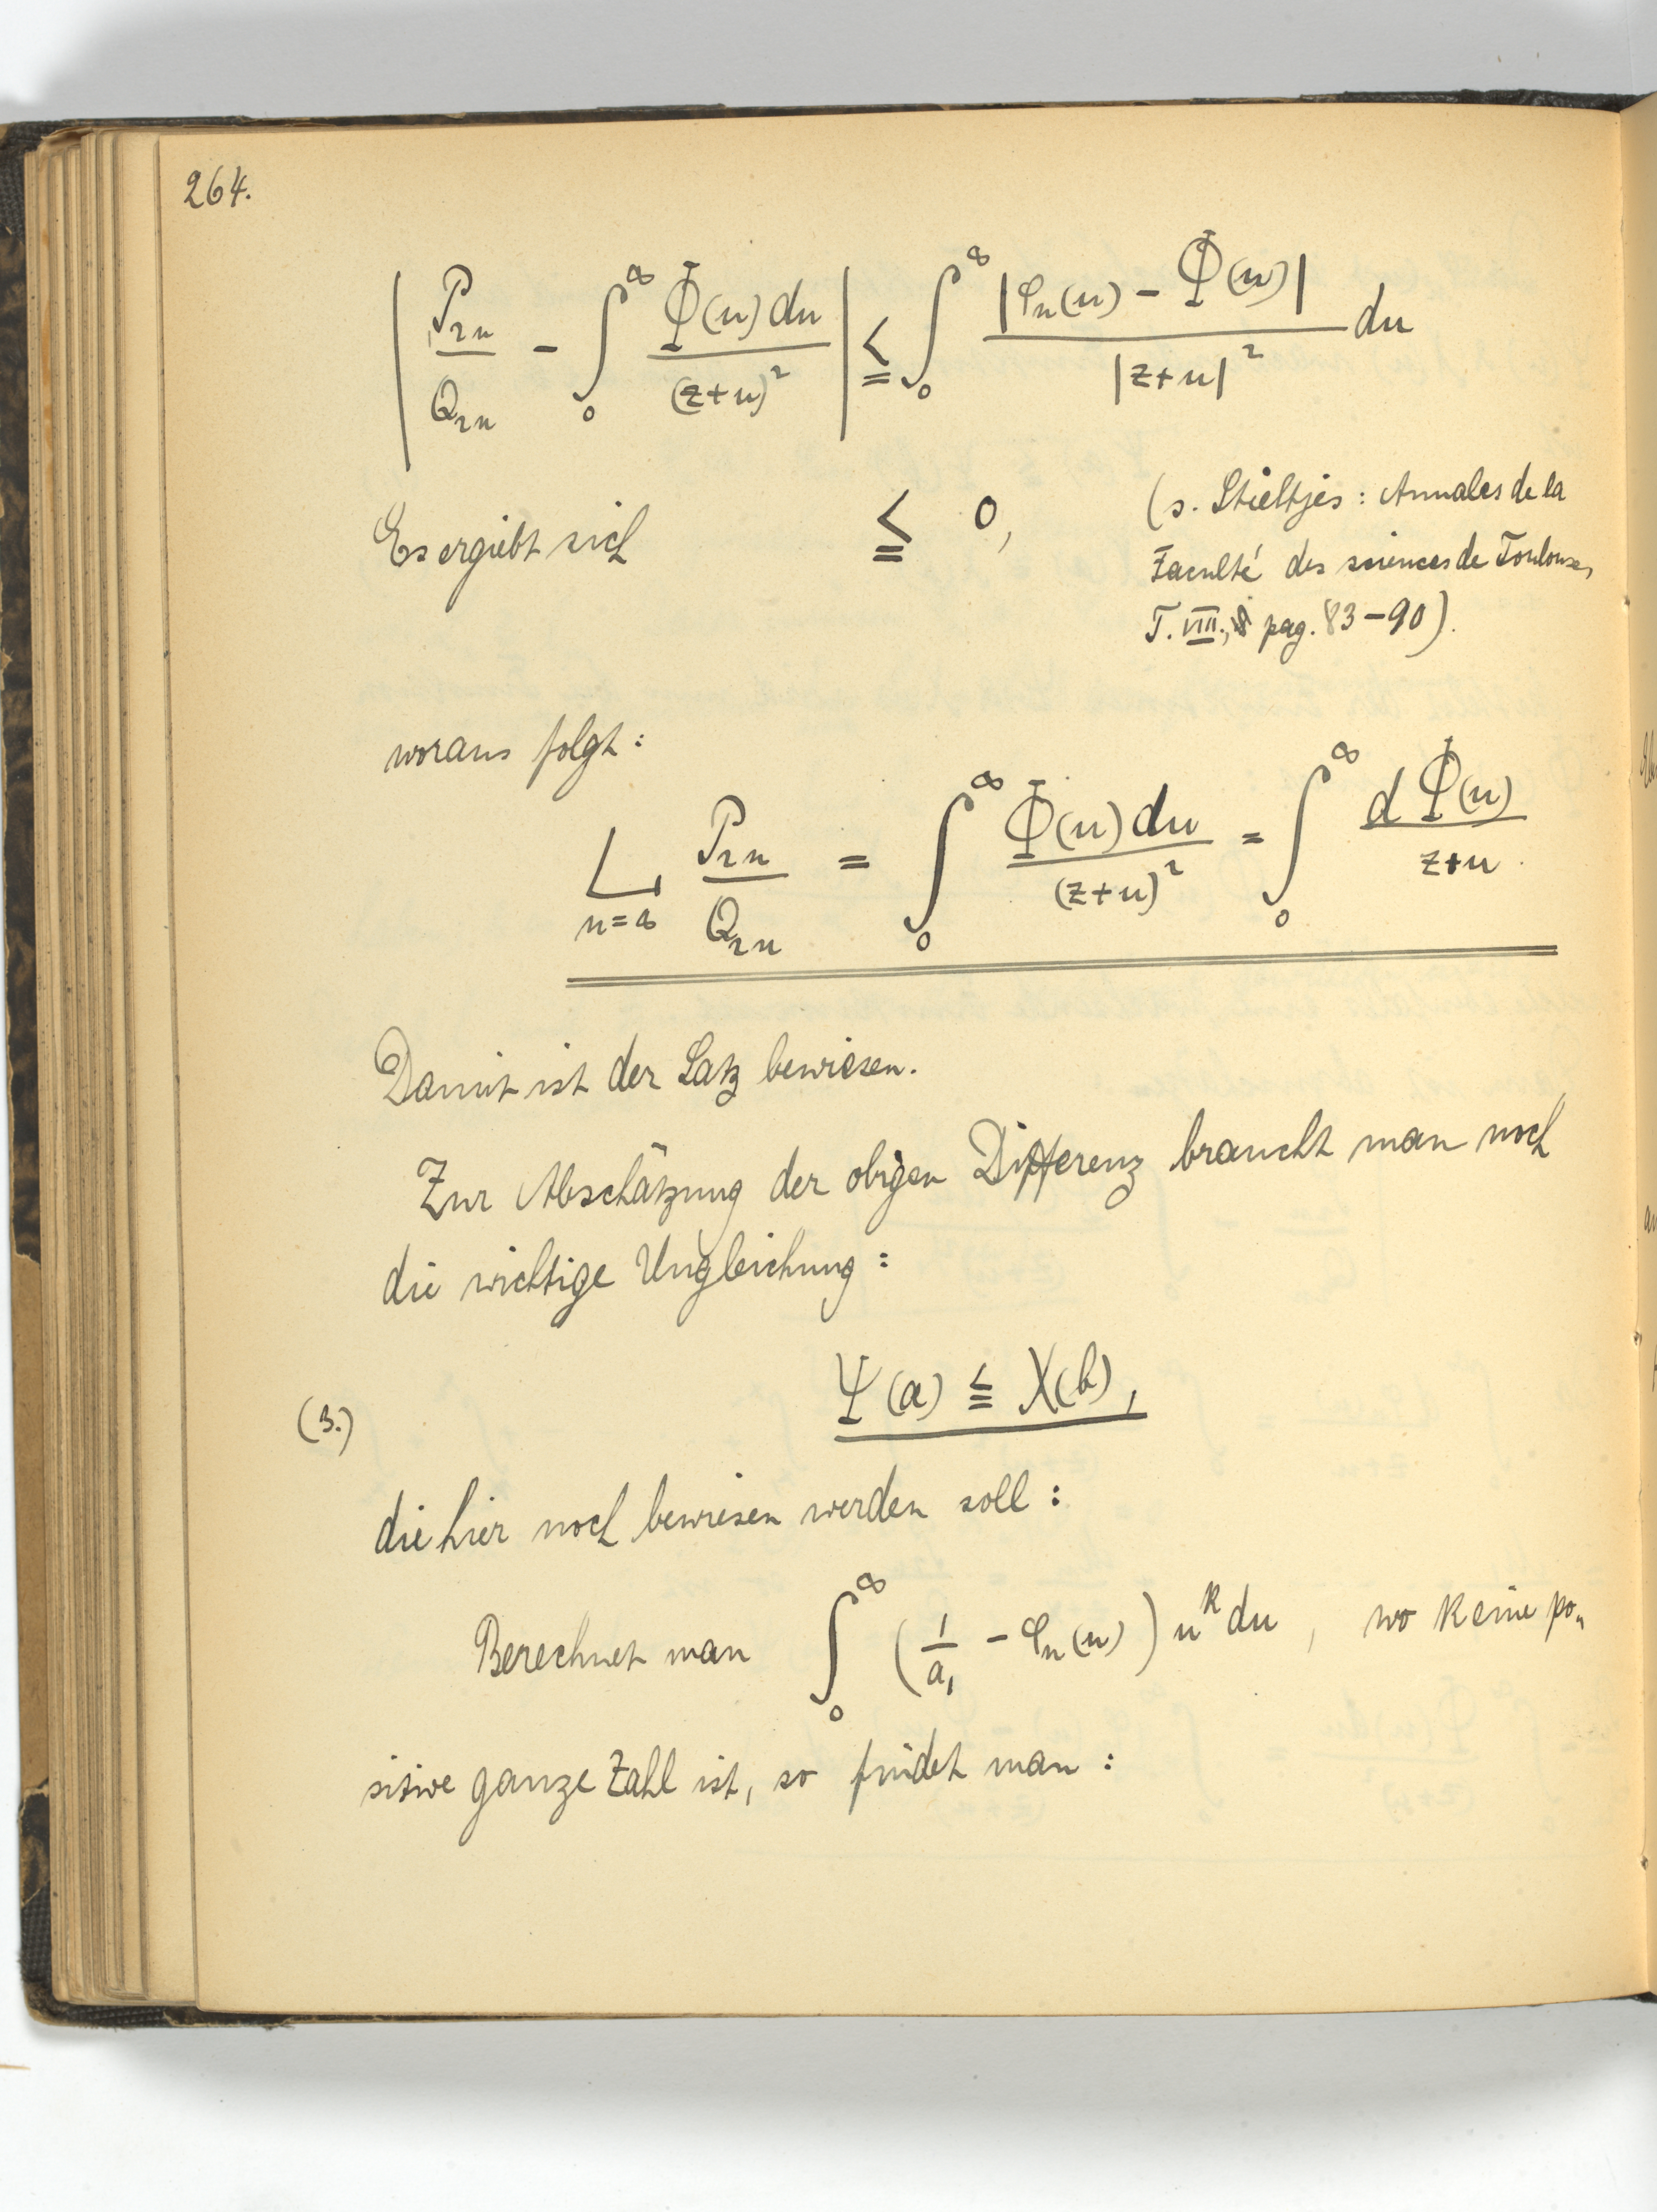 264.
| P₂ₙ/Q₂ₙ - ∫₀^∞ Φ(u)du/(z+u)² | ≦ ∫₀^∞ |φₙ(u) - Φ(u)|/|z+u|² du
Es ergiebt sich ≦ 0, (s. Stieltjes: Annales de la
Faculté des sciences de Toulouse,
T. VIII., pag. 83-90).
woraus folgt:
L_{n=∞} P₂ₙ/Q₂ₙ = ∫₀^∞ Φ(u)du/(z+u)² = ∫₀^∞ dΦ(u)/(z+u).
Damit ist der Satz bewiesen.
Zur Abschätzung der obigen Differenz braucht man noch
die wichtige Ungleichung:
(3.) Ψ(a) ≦ X(b),
die hier noch bewiesen werden soll:
Berechnet man ∫₀^∞ (1/a₁ - φₙ(u)) u^k du, wo k eine po„
sitive ganze Zahl ist, so findet man: